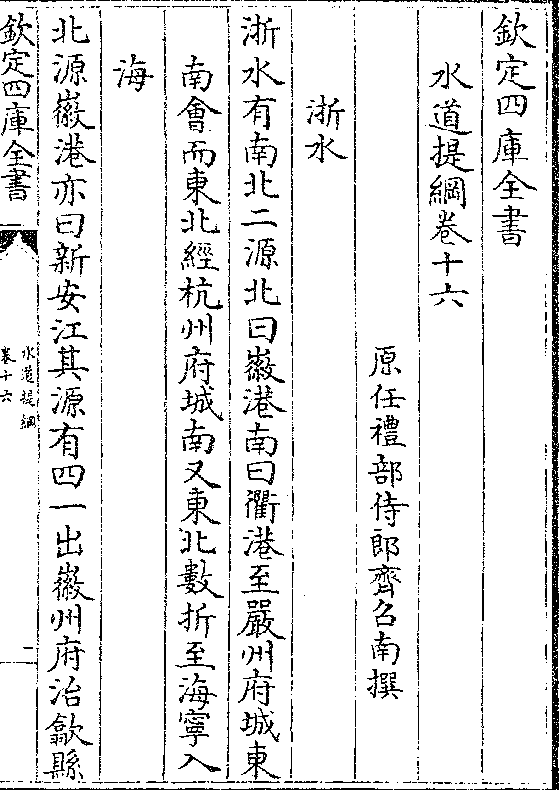 欽定四庫全書
水道提綱卷十六
原任禮部侍郎齊召南撰
浙水
浙水有南北二源北曰徽港南曰衢港至嚴州府城東
南會而東北經杭州府城南又東北數折至海寧入
海
北源徽港亦曰新安江其源有四一出徽州府治歙縣
欽定四庫全書
水道提綱
卷十六
一